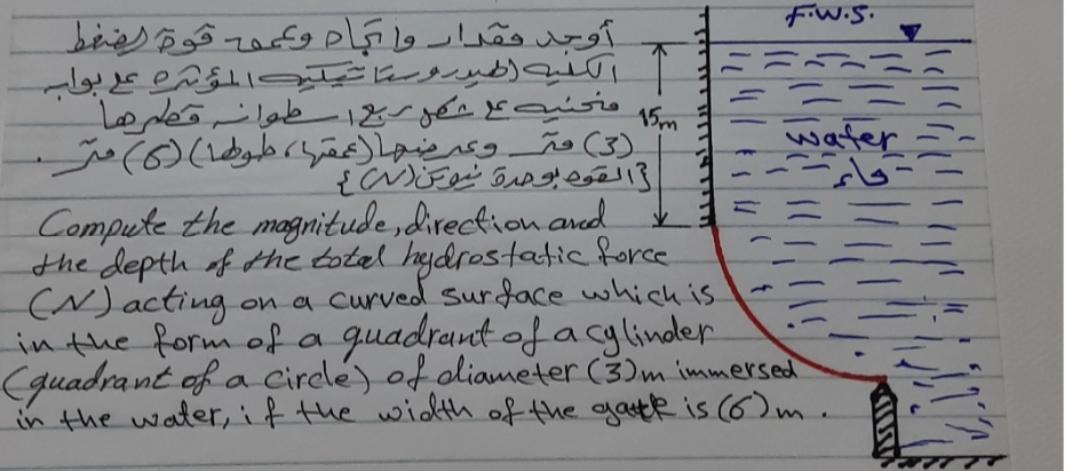 أوجد مقدار واتجاه وعمق قوة الضغط
الكلية الهيدروستاتيكية المؤثرة على بوابة
منحنية على شكل ربع اسطوانة قطرها
(3) متر وعرضها (عمقها، طولها) (6) متر.
{القوة بوحدة نيوتن (N)}
Compute the magnitude, direction and
the depth of the total hydrostatic force
(N) acting on a curved surface which is
in the form of a quadrant of a cylinder
(quadrant of a circle) of diameter (3)m immersed
in the water, if the width of the gate is (6)m.
F.W.S.
15m
water
ماء